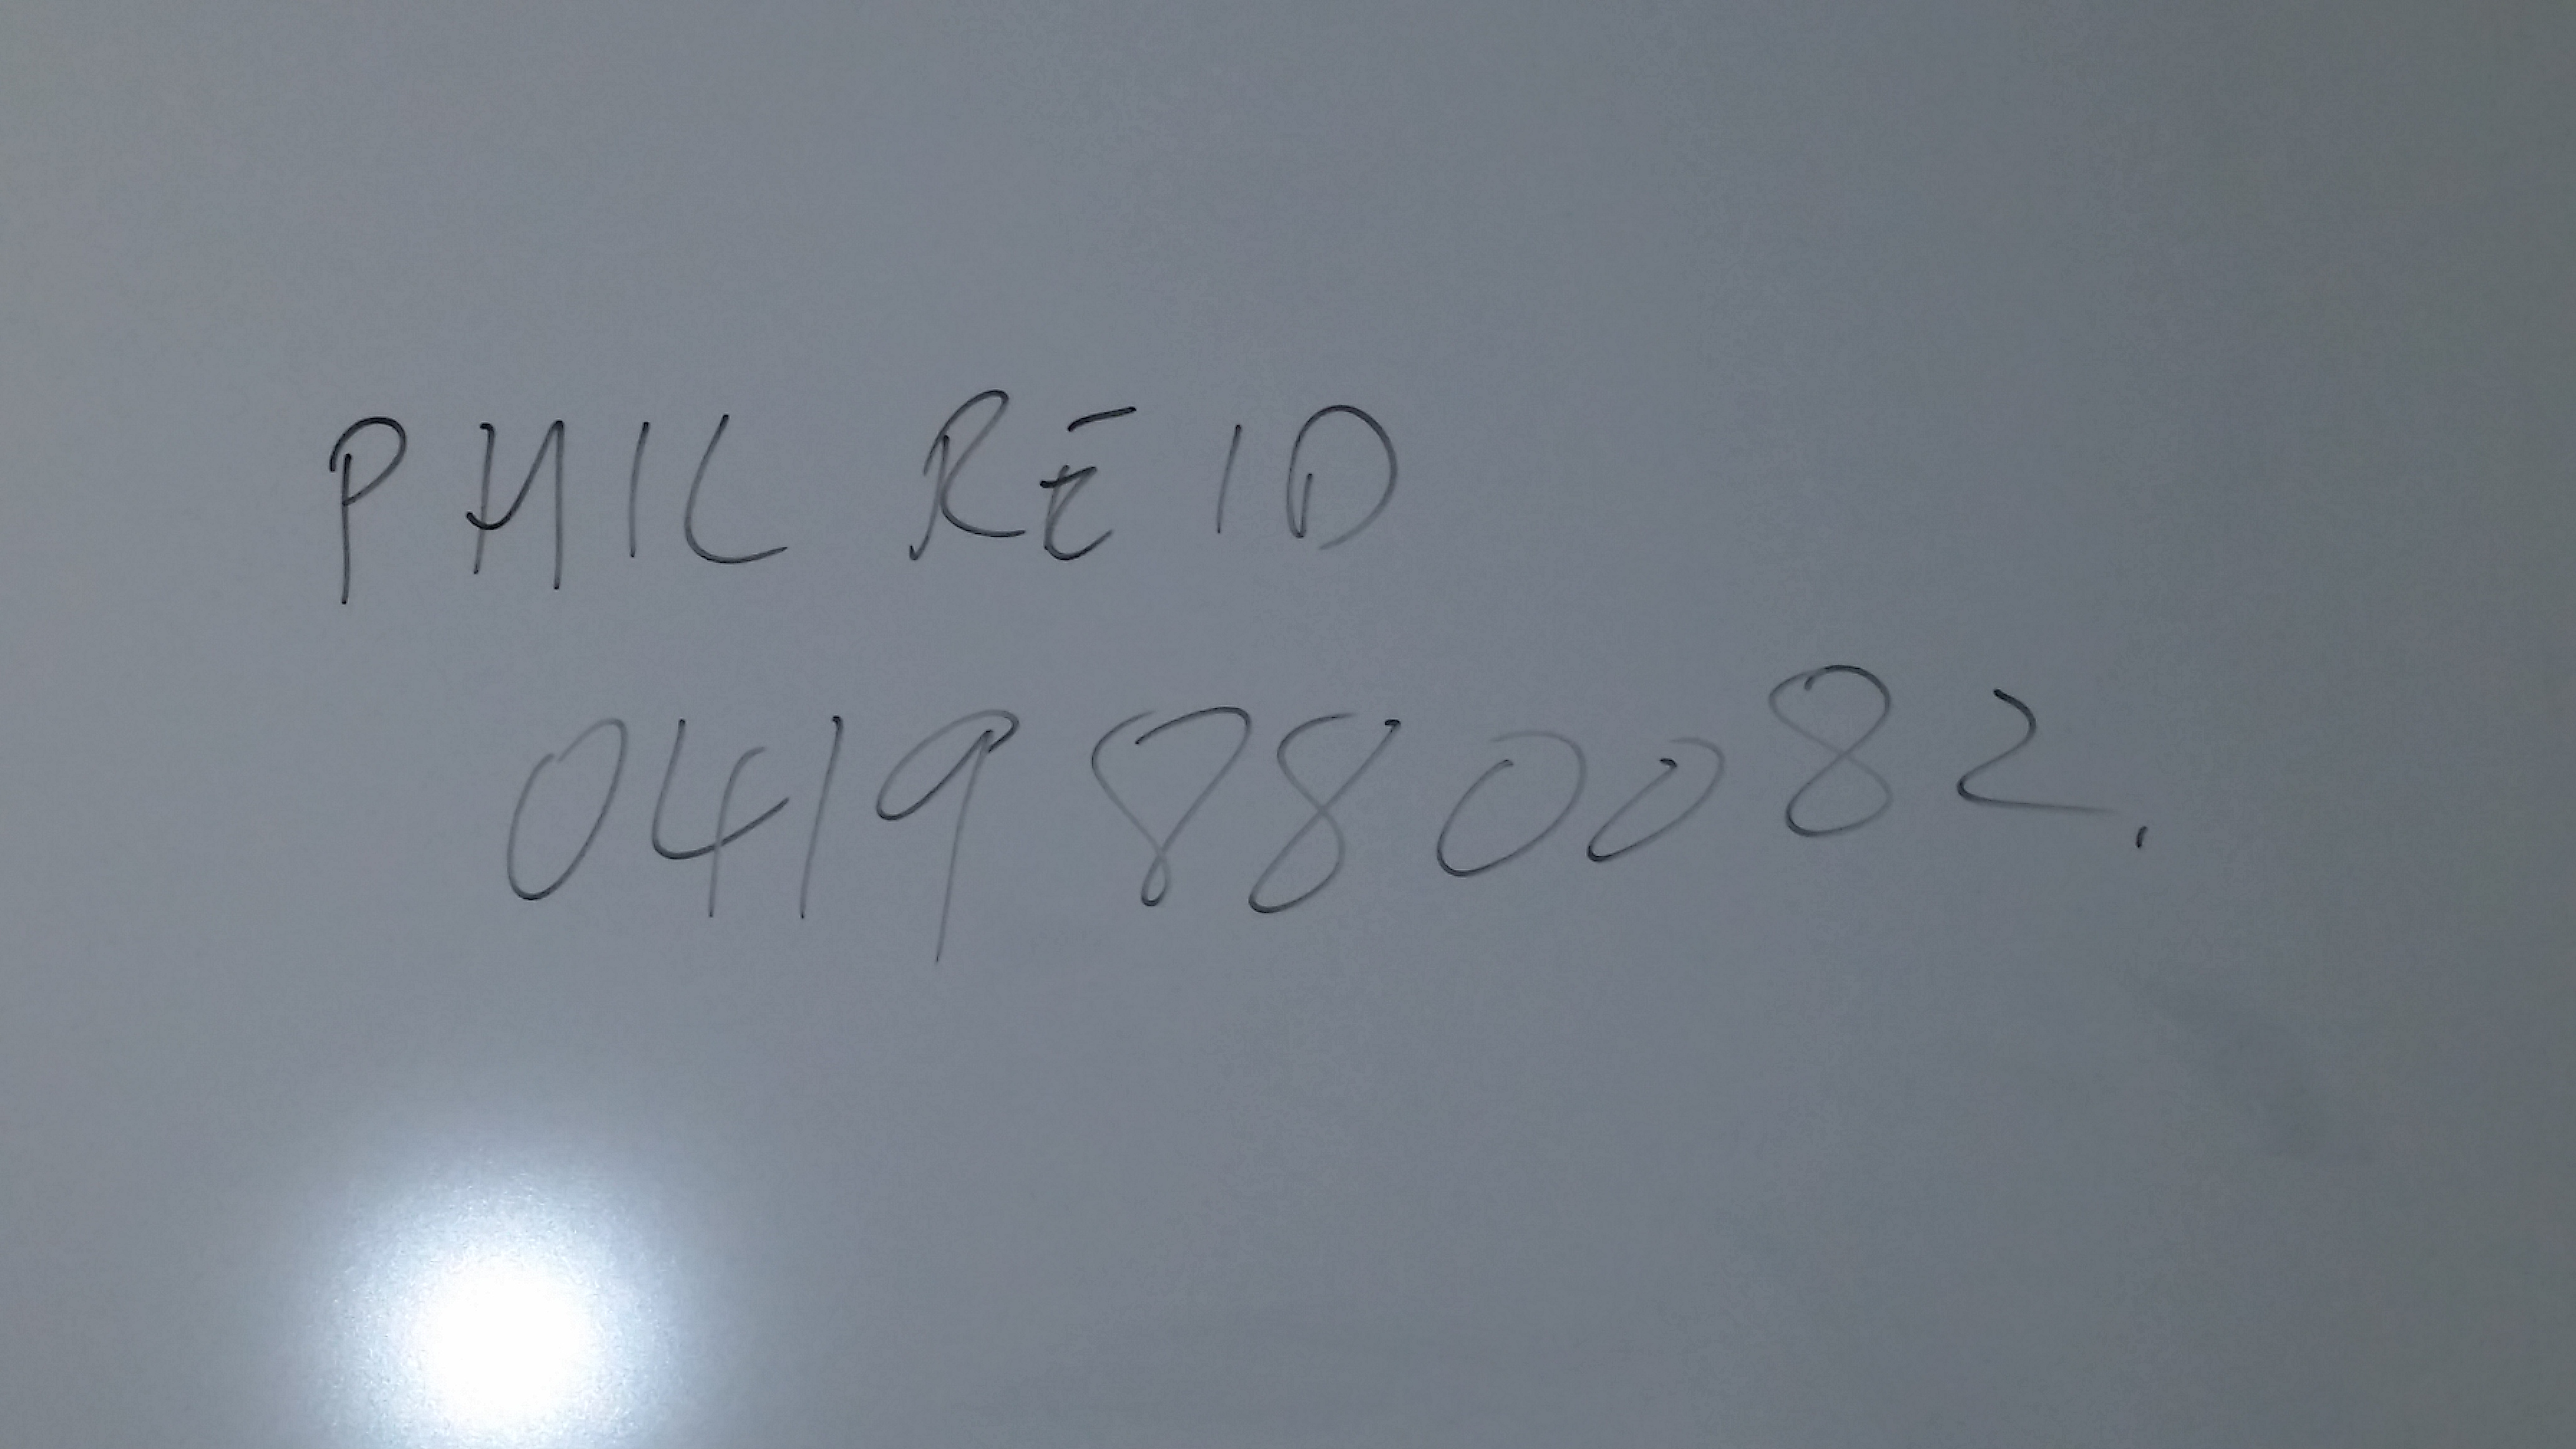 PHIL REID
0419 880082.